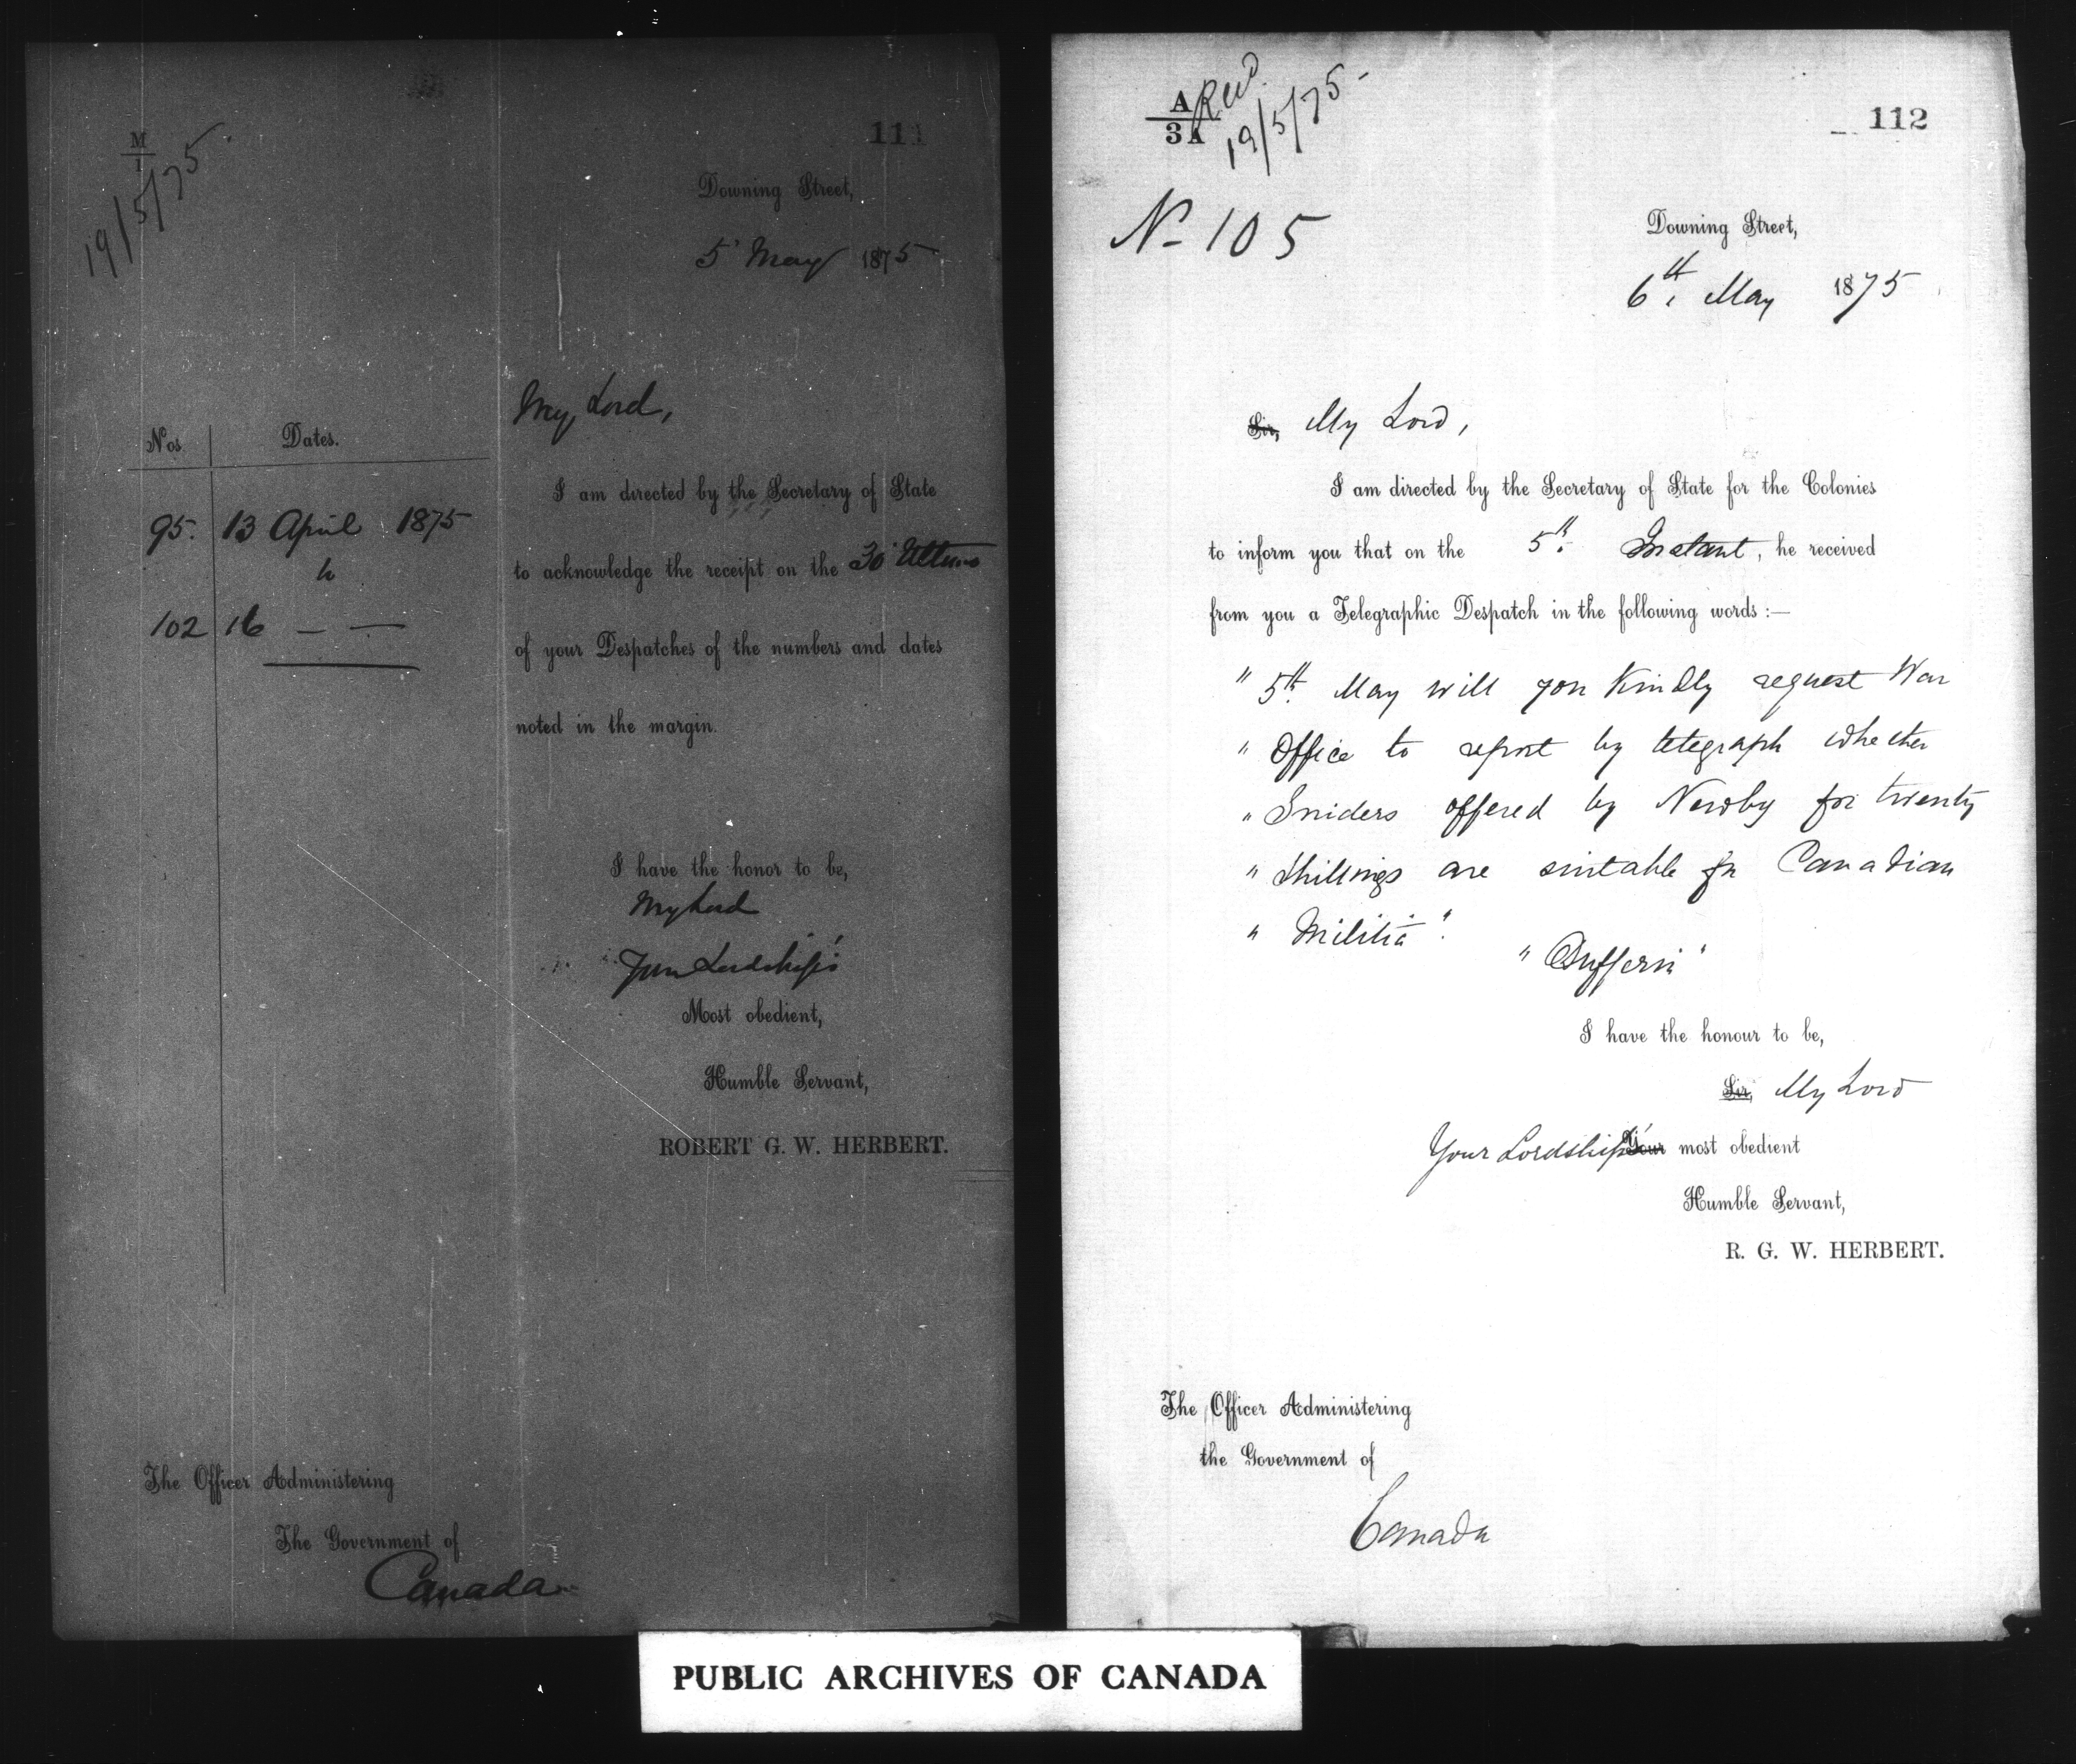 M
1
19/5/75
111
Downing Street,
5 May 1875
My Lord,
Nos Dates.
I am directed by the Secretary of State
95. 13 April 1875
to acknowledge the receipt on the 30 Ultimo
to
102 16 — —
of your Despatches of the numbers and dates
noted in the margin.
I have the honor to be,
My Lord
Your Lordship's
Most obedient,
Humble Servant,
ROBERT G. W. HERBERT.
The Officer Administering
The Government of
Canada
A
3 A
Recd.
19/5/75
112
No 105
Downing Street,
6th May 1875
Sir, My Lord,
I am directed by the Secretary of State for the Colonies
to inform you that on the 5th Instant, he received
from you a Telegraphic Despatch in the following words :—
" 5th May will you kindly request War
" Office to report by telegraph whether
" Sniders offered by Newby for twenty
" Shillings are suitable for Canadian
" Militia".
" Dufferin "
I have the honour to be,
Sir, My Lord
Your Lordship's Your most obedient
Humble Servant,
R. G. W. HERBERT.
The Officer Administering
the Government of
Canada
PUBLIC ARCHIVES OF CANADA